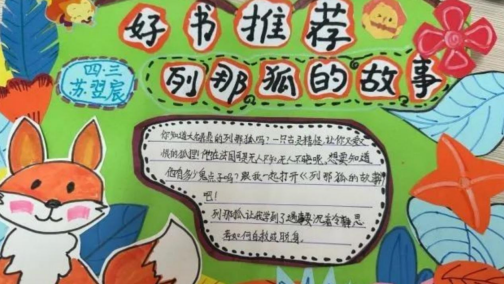 好书推荐
列那狐的故事
四.三
苏翌宸
你知道大名鼎鼎的列那狐吗?一只古灵精怪,让你又爱又
恨的狐狸!他在法国可是无人不知无人不晓呢,想要知道
他有多少鬼点子吗?跟我一起打开《列那狐的故事》
吧!
列那狐让我学到了遇事要沉着冷静,思
考如何自救